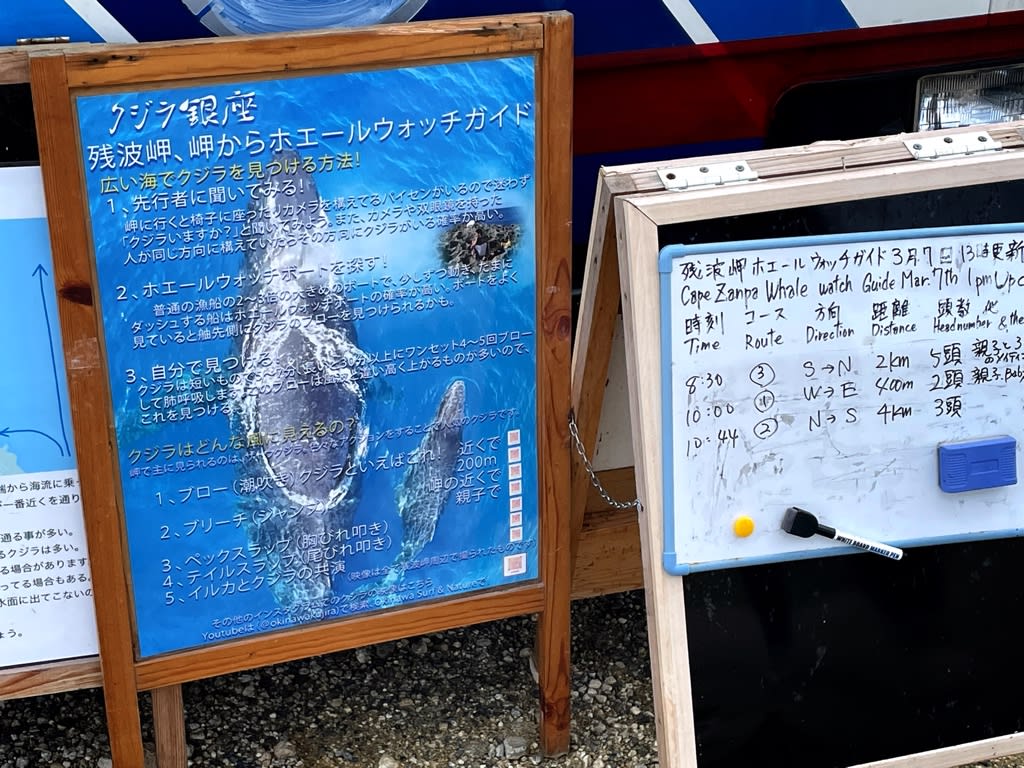 クジラ銀座
残波岬、岬からホエールウォッチガイド
広い海でクジラを見つける方法!
1、先行者に聞いてみる!
岬に行くと椅子に座ったりカメラを構えてるパイセンがいるので迷わず
「クジラいますか?」と聞いてみよう。また、カメラや双眼鏡を持った
人が同じ方向に構えていたらその方向にクジラがいる確率が高い。
2、ホエールウォッチボートを探す!
普通の漁船の2〜3倍の大きめのボートで、少しずつ動き、たまに
ダッシュする船はホエールウォッチボートの確率が高い。ボートをよく
見ていると舳先側にクジラのブローを見つけられるかも。
3、自分で見つける
クジラは短いもので 分、長い 以上にワンセット4〜5回ブロー
して肺呼吸しま ブローは 違い高く上がるものが多いので、
これを見つける
クジラはどんな風に見えるの?
岬で主に見られるのは、 アクションをすること のクジラです
1、ブロー(潮吹き)クジラといえばこれ! 近くで
200m
2、ブリーチ(ジャンプ) 岬の近くで
親子で
3、ペックスラップ(胸びれ叩き)
4、テイルスラップ(尾びれ叩き)
5、イルカとクジラの共演
(映像は全て残波岬周辺で撮られたものです)
その他のインスタグラムでのクジラの映像はこちら
Youtubeは(@okinawakujira)で検索、Okinawa Surf & Natureで
端から海流に乗っ
一番近くを通り
通る事が多い。
るクジラは多い。
る場合があります
ってる場合もある。
水面に出てこないの
ょう。
残波岬ホエールウォッチガイド 3月7日 13時更新
Cape Zanpa Whale watch Guide Mar. 7th 1pm Up
時刻 コース 方向 距離 頭数、他
Time Route Direction Distance Headnumber & the
8:30 ③ S→N 2km 5頭 親子と3
10:00 ⑪ W→E 400m 2頭 親子、Baby
10:44 ② N→S 4km 3頭
WHITE BOARD MARKER PEN